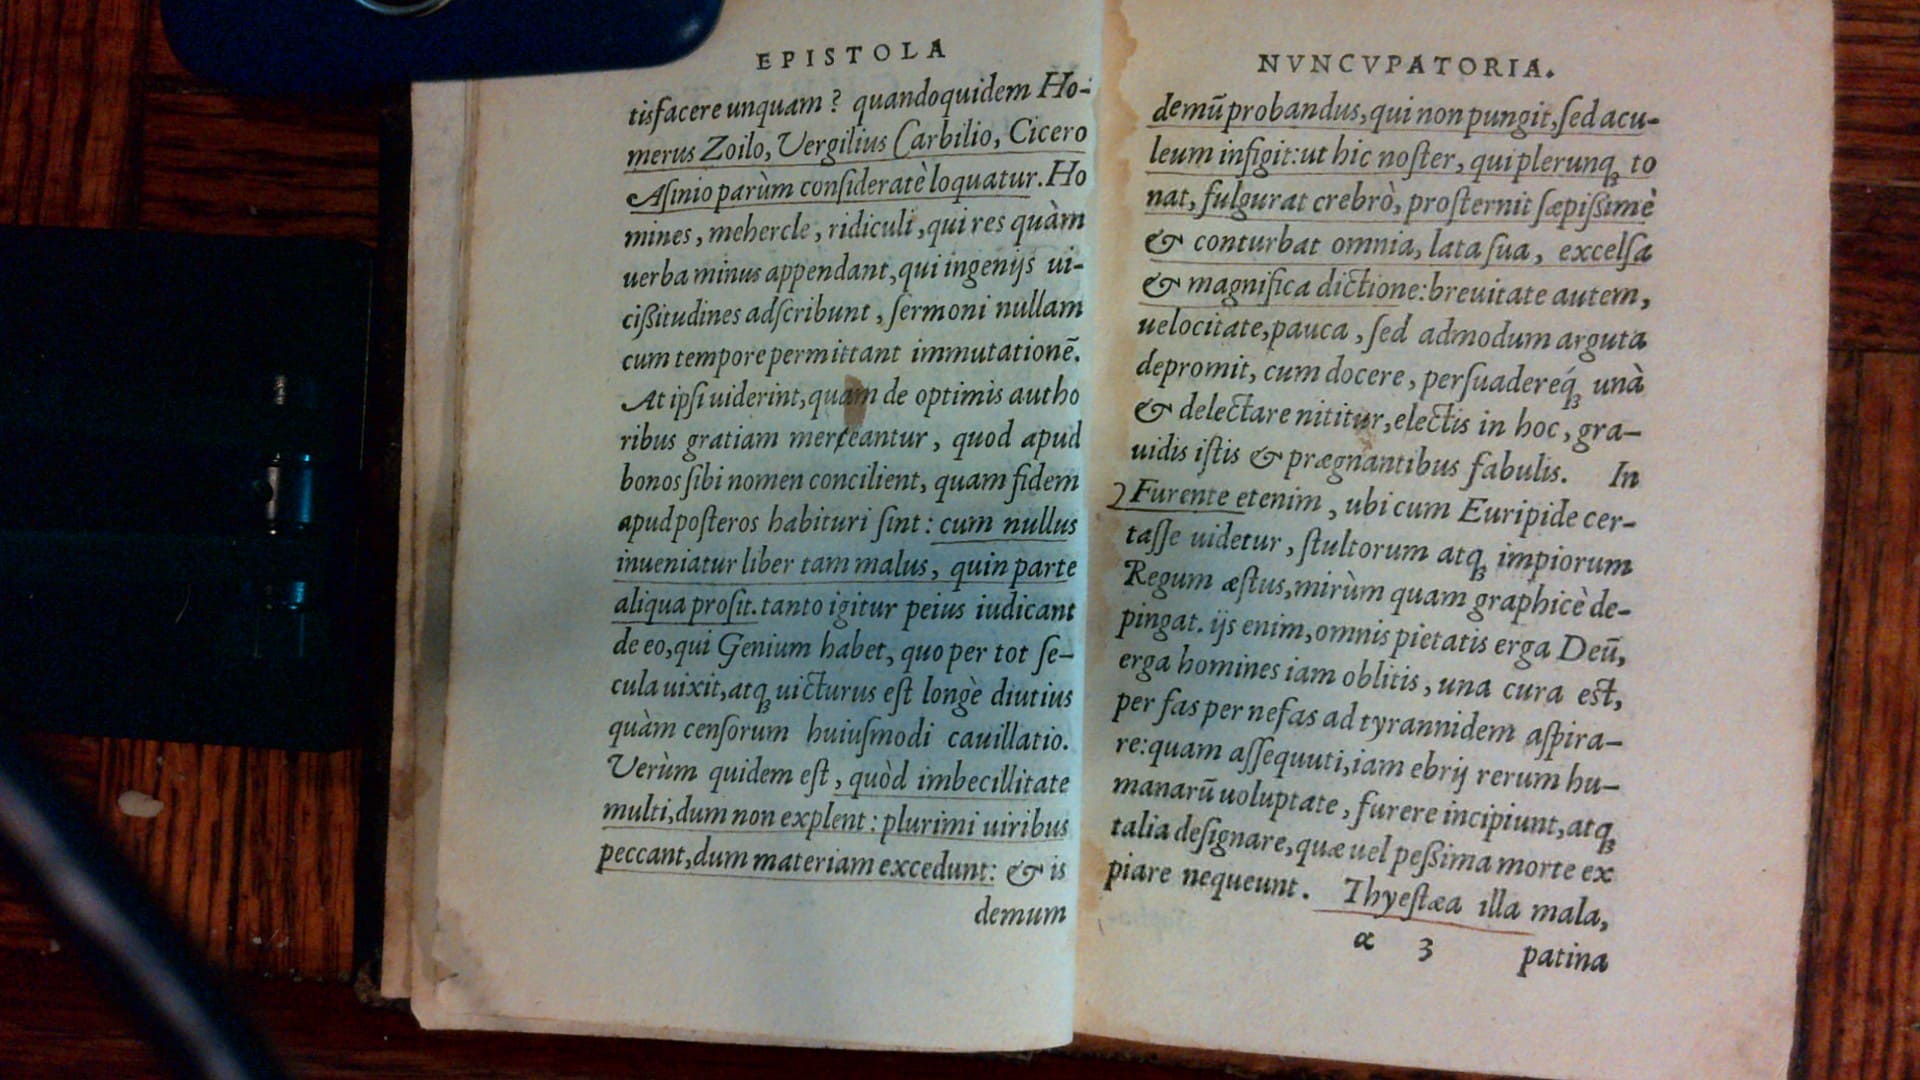 EPISTOLA
tisfacere unquam? quandoquidem Ho-
merus Zoilo, Vergilius Carbilio, Cicero
Asinio parùm consideratè loquatur. Ho
mines, mehercle, ridiculi, qui res quàm
uerba minus appendant, qui ingenijs ui-
cißitudines adscribunt, sermoni nullam
cum tempore permittant immutationē.
At ipsi uiderint, quam de optimis autho
ribus gratiam merceantur, quod apud
bonos sibi nomen concilient, quam fidem
apud posteros habituri sint: cum nullus
inueniatur liber tam malus, quin parte
aliqua prosit. tanto igitur peius iudicant
de eo, qui Genium habet, quo per tot se-
cula uixit, atq; uicturus est longè diutius
quàm censorum huiusmodi cauillatio.
Verùm quidem est, quòd imbecillitate
multi, dum non explent: plurimi uiribus
peccant, dum materiam excedunt: & is
demum
NVNCVPATORIA.
demū probandus, qui non pungit, sed acu-
leum infigit: ut hic noster, qui plerunq; to
nat, fulgurat crebrò, prosternit sæpißimè
& conturbat omnia, lata sua, excelsa
& magnifica dictione: breuitate autem,
uelocitate, pauca, sed admodum arguta
depromit, cum docere, persuadereq́; unà
& delectare nititur, electis in hoc, gra-
uidis istis & prægnantibus fabulis. In
Furente etenim, ubi cum Euripide cer-
tasse uidetur, stultorum atq; impiorum
Regum æstus, mirùm quam graphicè de-
pingat. ijs enim, omnis pietatis erga Deū,
erga homines iam oblitis, una cura est,
per fas per nefas ad tyrannidem aspira-
re: quam assequuti, iam ebrij rerum hu-
manarū uoluptate, furere incipiunt, atq;
talia designare, quæ uel peßima morte ex
piare nequeunt. Thyestæa illa mala,
α 3 patina